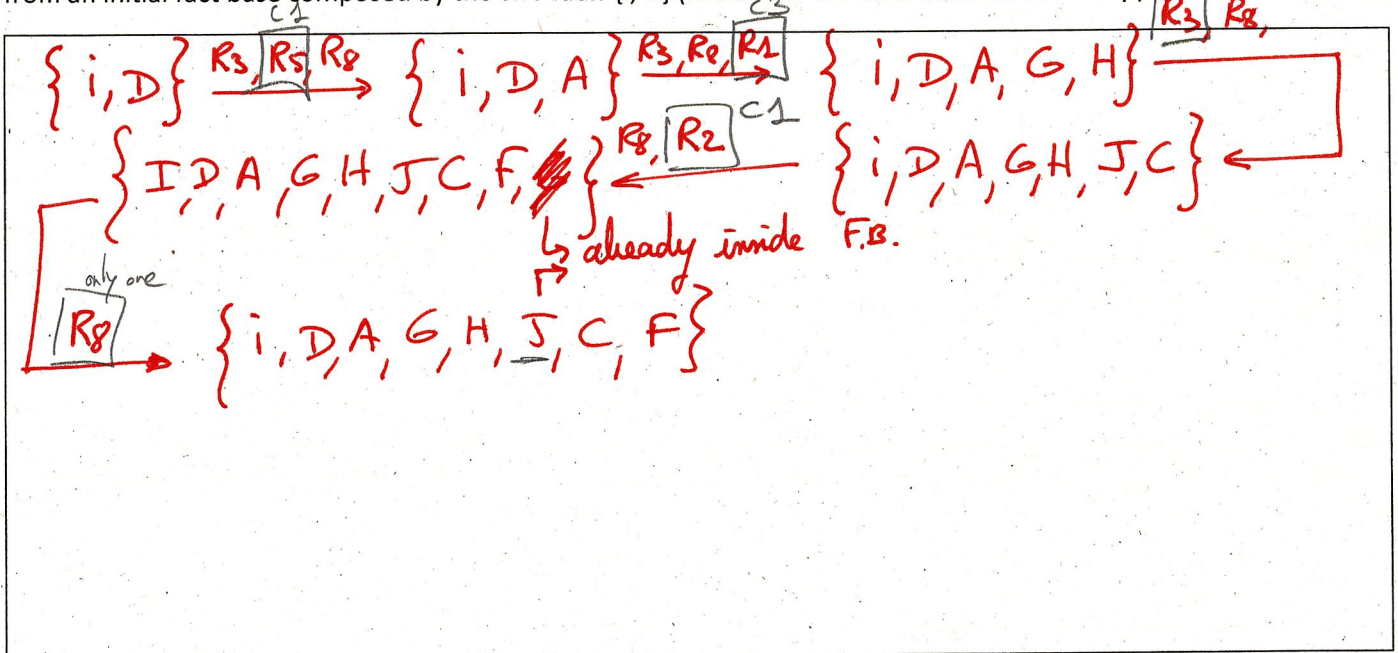 from an initial fact base composed by the two
C1 C3
{i, D} R3, R5, R8 {i, D, A} R3, R8, R1 {i, D, A, G, H} R3, R8,
{I, D, A, G, H, J, C, F, } R8, R2 C1 {i, D, A, G, H, J, C}
already inside F.B.
only one
R8 {i, D, A, G, H, J, C, F}